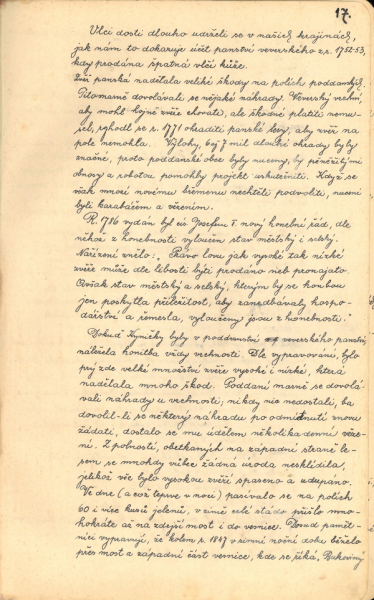 17.
Vlci dosti dlouho udrželi se v našich krajinách,
jak nám to dokazuje účet panství veverského z r. 1752-53,
kdy prodána špatná vlčí kůže.
Zvěř panská nadělala veliké škody na polích poddanských.
Pitomarně dovolávali se nějaké náhrady. Veverský vrchní,
aby mohl hojně zvěře chovati, ale škodné platiti nemu-
sel, rozhodl se r. 1771 ohraditi panské lesy, aby zvěř na
pole nemohla. Výlohy, 6 až 7 mil dlouhé ohrady byly
značné, proto poddanské obce byly nuceny, by peněžitými
obnosy a robotou pomohly projekt uskutečniti. Když se
však mnozí novému břemenu nechtěli podvoliti, nuceni
byli karabáčem a vězením.
R. 1786 vydán byl cís. Josefem II. nový honební řád, dle
něhož z honebnosti vyloučen stav městský i selský.
Nařízení znělo: „Právo lovu jak vysoké tak nízké
zvěře může dle libosti býti prodáno neb pronajato.
Avšak stav městský a selský, kterým by se honbou
jen poskytla příležitost, aby zanedbávaly hospo-
dářství a řemesla, vyloučeny jsou z honebnosti."
Dokud Kyničky byly v poddanství veverského panství,
náležela honitba vždy vrchnosti. Dle vypravování, bylo
prý zde velké množství zvěře vysoké i nízké, která
nadělala mnoho škod. Poddaní marně se dovolá-
vali náhrady u vrchnosti, nikdy nic nedostali, ba
dovolil-li se některý náhradu po odmítnutí znovu
žádati, dostalo se mu údělem několikadenní věze-
ní. Z pobností, obetkaných na západní straně le-
sem se mnohdy vůbec žádná úroda nesklídila,
jelikož vše bylo vysokou zvěří spaseno a udupáno.
Ve dne (a což teprve v noci) pasívalo se na polích
60 i více kusů jelenů, v zimě celé stádo přišlo mno-
hokráte až na zdejší most i do vesnice. Dosud pamět-
níci vypravují, že kolem r. 1847 v zimní noční dobu běželo
přes most a západní část vesnice, kde se říká, Bukoviny